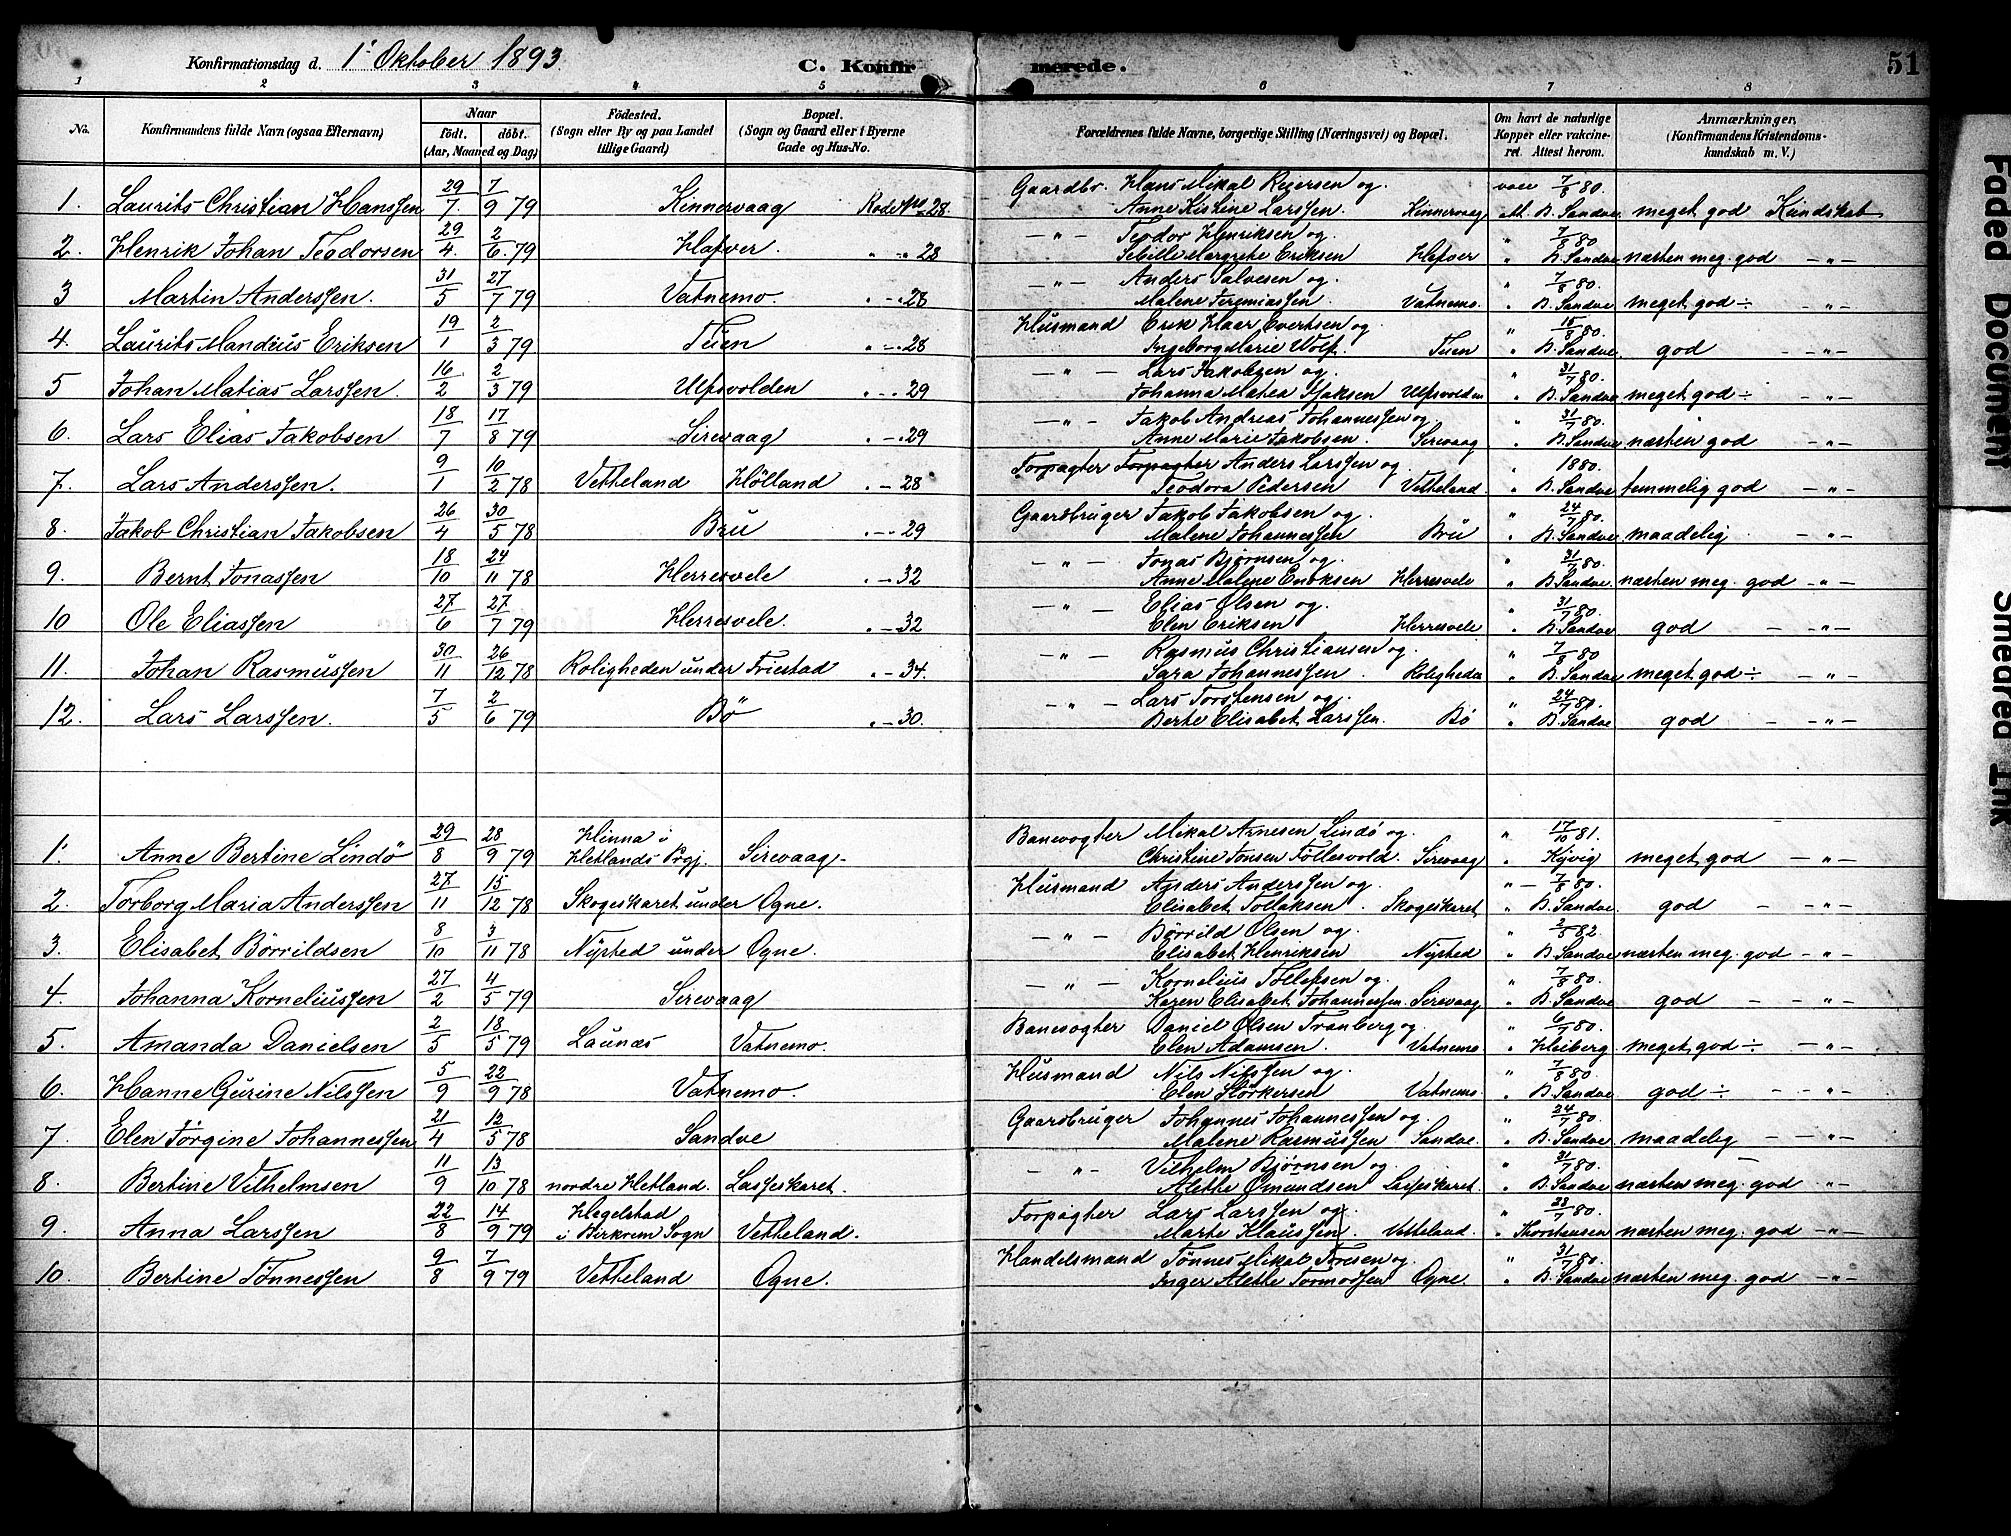 Konfirmationsdag d. 1ᵗᵉ Oktober 1893 C. Konfirmerede. 51
1 2 3 4 5 6 7 8
No. Konfirmandens fulde Navn (ogsaa Efternavn) Naar født. døbt. (Aar, Maaned og Dag) Födested. (Sogn eller By og paa Landet tillige Gaard) Bopæl. (Sogn og Gaard eller i Byerne Gade og Hus-No. Forældrenes fulde Navne, borgerlige Stilling (Næringsvei) og Bopæl. Om havt de naturlige Kopper eller vakcineret. Attest herom. Anmærkninger, (Konfirmandens Kristendomskundskab m. V.)
1. Laurits Christian Hanssen 29/7 7/9 79 Kinnervaag Rode No 28 Gaardbr. Hans Mikal Reiersen og Anne Kistine Larssen. Kinnervaag vacc 7/8 80. At. B. Sandve meget god Kundskab
2. Henrik Johan Teodorsen 29/4. 2/6. 79 Hafver. " " 28 — " — Teodor Henriksen og Sebille Margrethe Eriksen Hafver " 7/8 80 B. Sandve næsten meg. god — " —
3 Martin Anderssen. 31/5 27/7 79 Vatnemo. " - " 28 — " — Anders Salvesen og Malene Jeremiassen. Vatnemo. " 7/8 80. B. Sandve meget god ÷ — " —
4. Laurits Mandius Eriksen 19/1 2/3 79 Tuen " — " 28 Husmand Erik Haar Evertsen og Ingeborg Marie Wolf. Tuen " 15/8 80. B. Sandve. god — " —
5 Johan Matias Larssen. 16/2 2/3 79 Ulfsvolden " - " 29 — " — Lars Jakobsen og Johanna Matea Isaksen Ulfsvolden " 31/7 80. B. Sandve meget god ÷ — " —
6. Lars Elias Jakobsen 18/7 17/8 79 Sirevaag " - " 29 — " — Jakob Andreas Johannessen og Anne Marie Jakobsen. Sirevaag " 31/7 80. B. Sandve næsten god — " —
7. Lars Anderssen. 9/1 10/2 78 Vetteland Hölland " — 28 Forpagter Forpagter Anders Larssen og Teodora Pedersen Vetteland " 1880. B. Sandve temmelig god — " —
8. Jakob Christian Jakobsen 26/4 30/5 78 Bru " — " 29 Gaardbruger Jakob Jakobsen og Malene Johannessen Bru " 24/7 80. B. Sandve maadelig — " —
9. Bernt Jonassen 18/10 24/11 78 Herresvele " — 32 — " — Jonas Bjørnsen og Anne Malene Enoksen Herresvele " 31/7 80. B. Sandve. næsten meg. god — " —
10 Ole Eliassen 27/6 27/7 79 Herresvele. " — 32 — " — Elias Olsen og Elen Eriksen Herresvele " 31/7 80. B. Sandve god — " —
11. Johan Rasmussen 30/11 26/12 78 Roligheden under Friestad " — 34. — " — Rasmus Christiansen og Sara Johannessen. Roligheden " 7/8 80 B. Sandve meget god ÷ — " —
12. Lars Larssen. 7/5 2/6 79 Bø " — 30. — " — Lars Torstensen og Berte Elisabet Larssen. Bö " 24/7 80. B. Sandve god — " —
1. Anne Bertine Lindö 29/8 28/9 79 Hinna i Hetlands Prgj. Sirevaag — Banevogter Mikal Arnesen Lindö og Christine Jonsen Föllesvold. Sirevaag " 17/10 81. Kyvig meget god — " —
2. Torborg Maria Anderssen 27/11 15/12 78 Skogeskaret under Ogne. Husmand Anders Anderssen og Elisabet Tollaksen. Skogeskaret " — 7/8 80. B. Sandve. god — " —
3. Elisabet Börrildsen 8/10 3/11 78 Nysted under Ogne. — " — Börrild Olsen og Elisabet Henriksen Nysted " 2/5 82. B. Sandve næsten meg. god — " —
4. Johanna Korneliussen 27/2 4/5 79 Sirevaag — " — Kornelius Tollefsen og Karen Elisabet Johannessen. Sirevaag " 7/8 80. B. Sandve god — " —
5. Amanda Danielsen 2/5 18/5 79 Launæs Vatnemo. Banevogter Daniel Olsen Tranberg og Elen Adamsen. Vatnemo " 6/7 80. Heiberg meget god ÷ — " —
6 Hanne Gurine Nilssen 5/9 22/9 78 Vatnemo. Husmand Nils Nilssen og Elen Störkersen Vatnemo " 7/8 80 B. Sandve god ÷ — " —
7. Elen Jörgine Johannessen 21/4 12/5 78 Sandve Gaardbruger Johannes Johannessen og Malene Rasmussen Sandve. " 24/7 80. B. Sandve maadelig — " —
8. Bertine Vilhelmsen 11/9 13/10 78 nordre Hetland. Lasseskaret. — " — Vilhelm Bjørnsen og Alethe Omundsen Lasseskaret. " 31/7 80. B. Sandve næsten meg. god — " —
9. Anna Larssen 22/8 14/9 79 Hegelstad i Birkrem Sogn Vetteland. Forpagter Lars Larssen og Marte Klaussen Vetteland. " 28/7 80. Thorstensen næsten meg. god — " —
10. Bertine Tönnessen 9/8 7/9 79 Vetteland Ogne. Handelsmand Tönnes Mikal Toresen og Inger Alethe Tormodsen Ogne " 31/7 80. B. Sandve næsten meg. god — " —
Faded Document
Smeared Ink